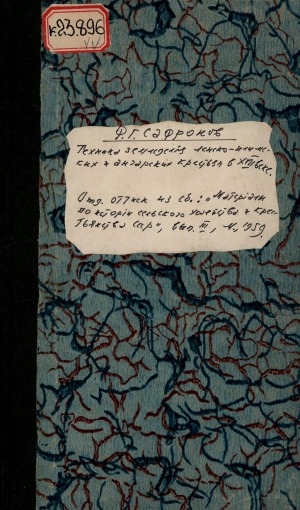 к23.896
Ф.Г. Сафронов
Техника земледелия ленско-илим-
ких и ангарских крестьян в XVII веке.
Отд. оттиск из сб.: „Материалы
по истории сельского хозяйства и крес-
тьянства СССР", вып. III, М., 1959.